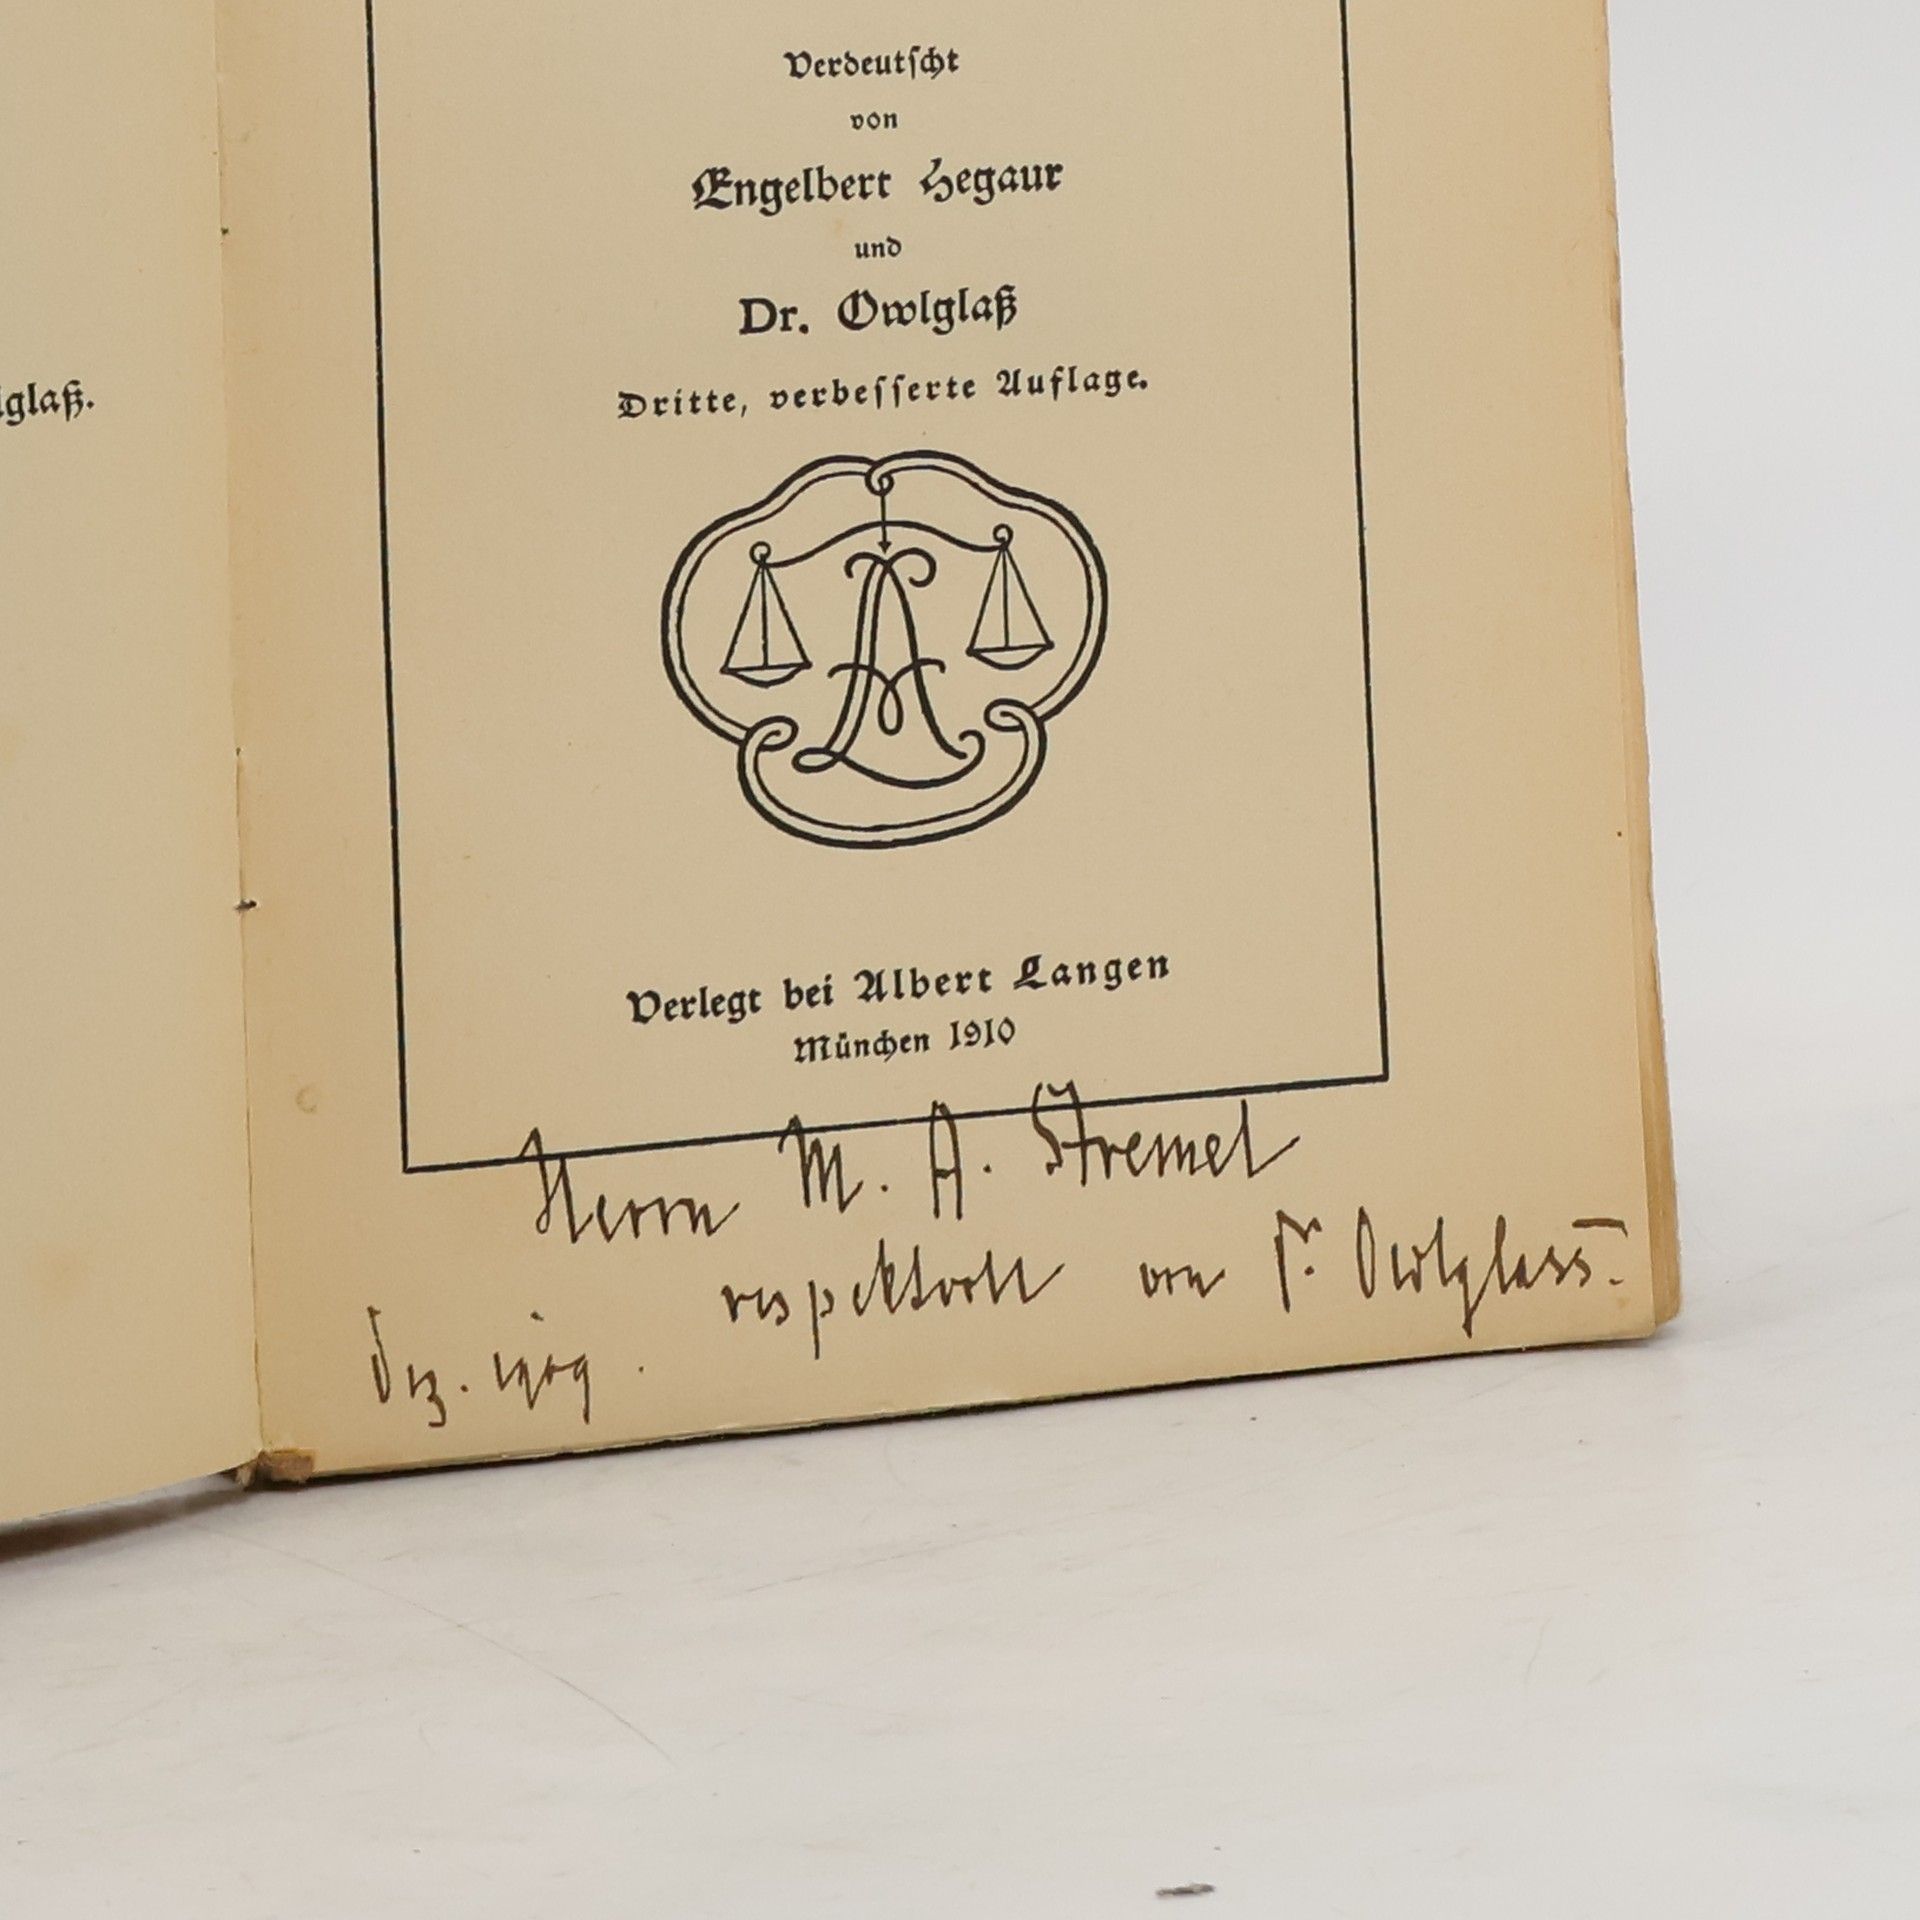 lglaß.
Verdeutscht
von
Engelbert Hegaur
und
Dr. Owlglaß
Dritte, verbesserte Auflage.
Verlegt bei Albert Langen
München 1910
Herrn M. A. Stremel
respektvoll von Dr. Owlglass.
Dez. 1909.